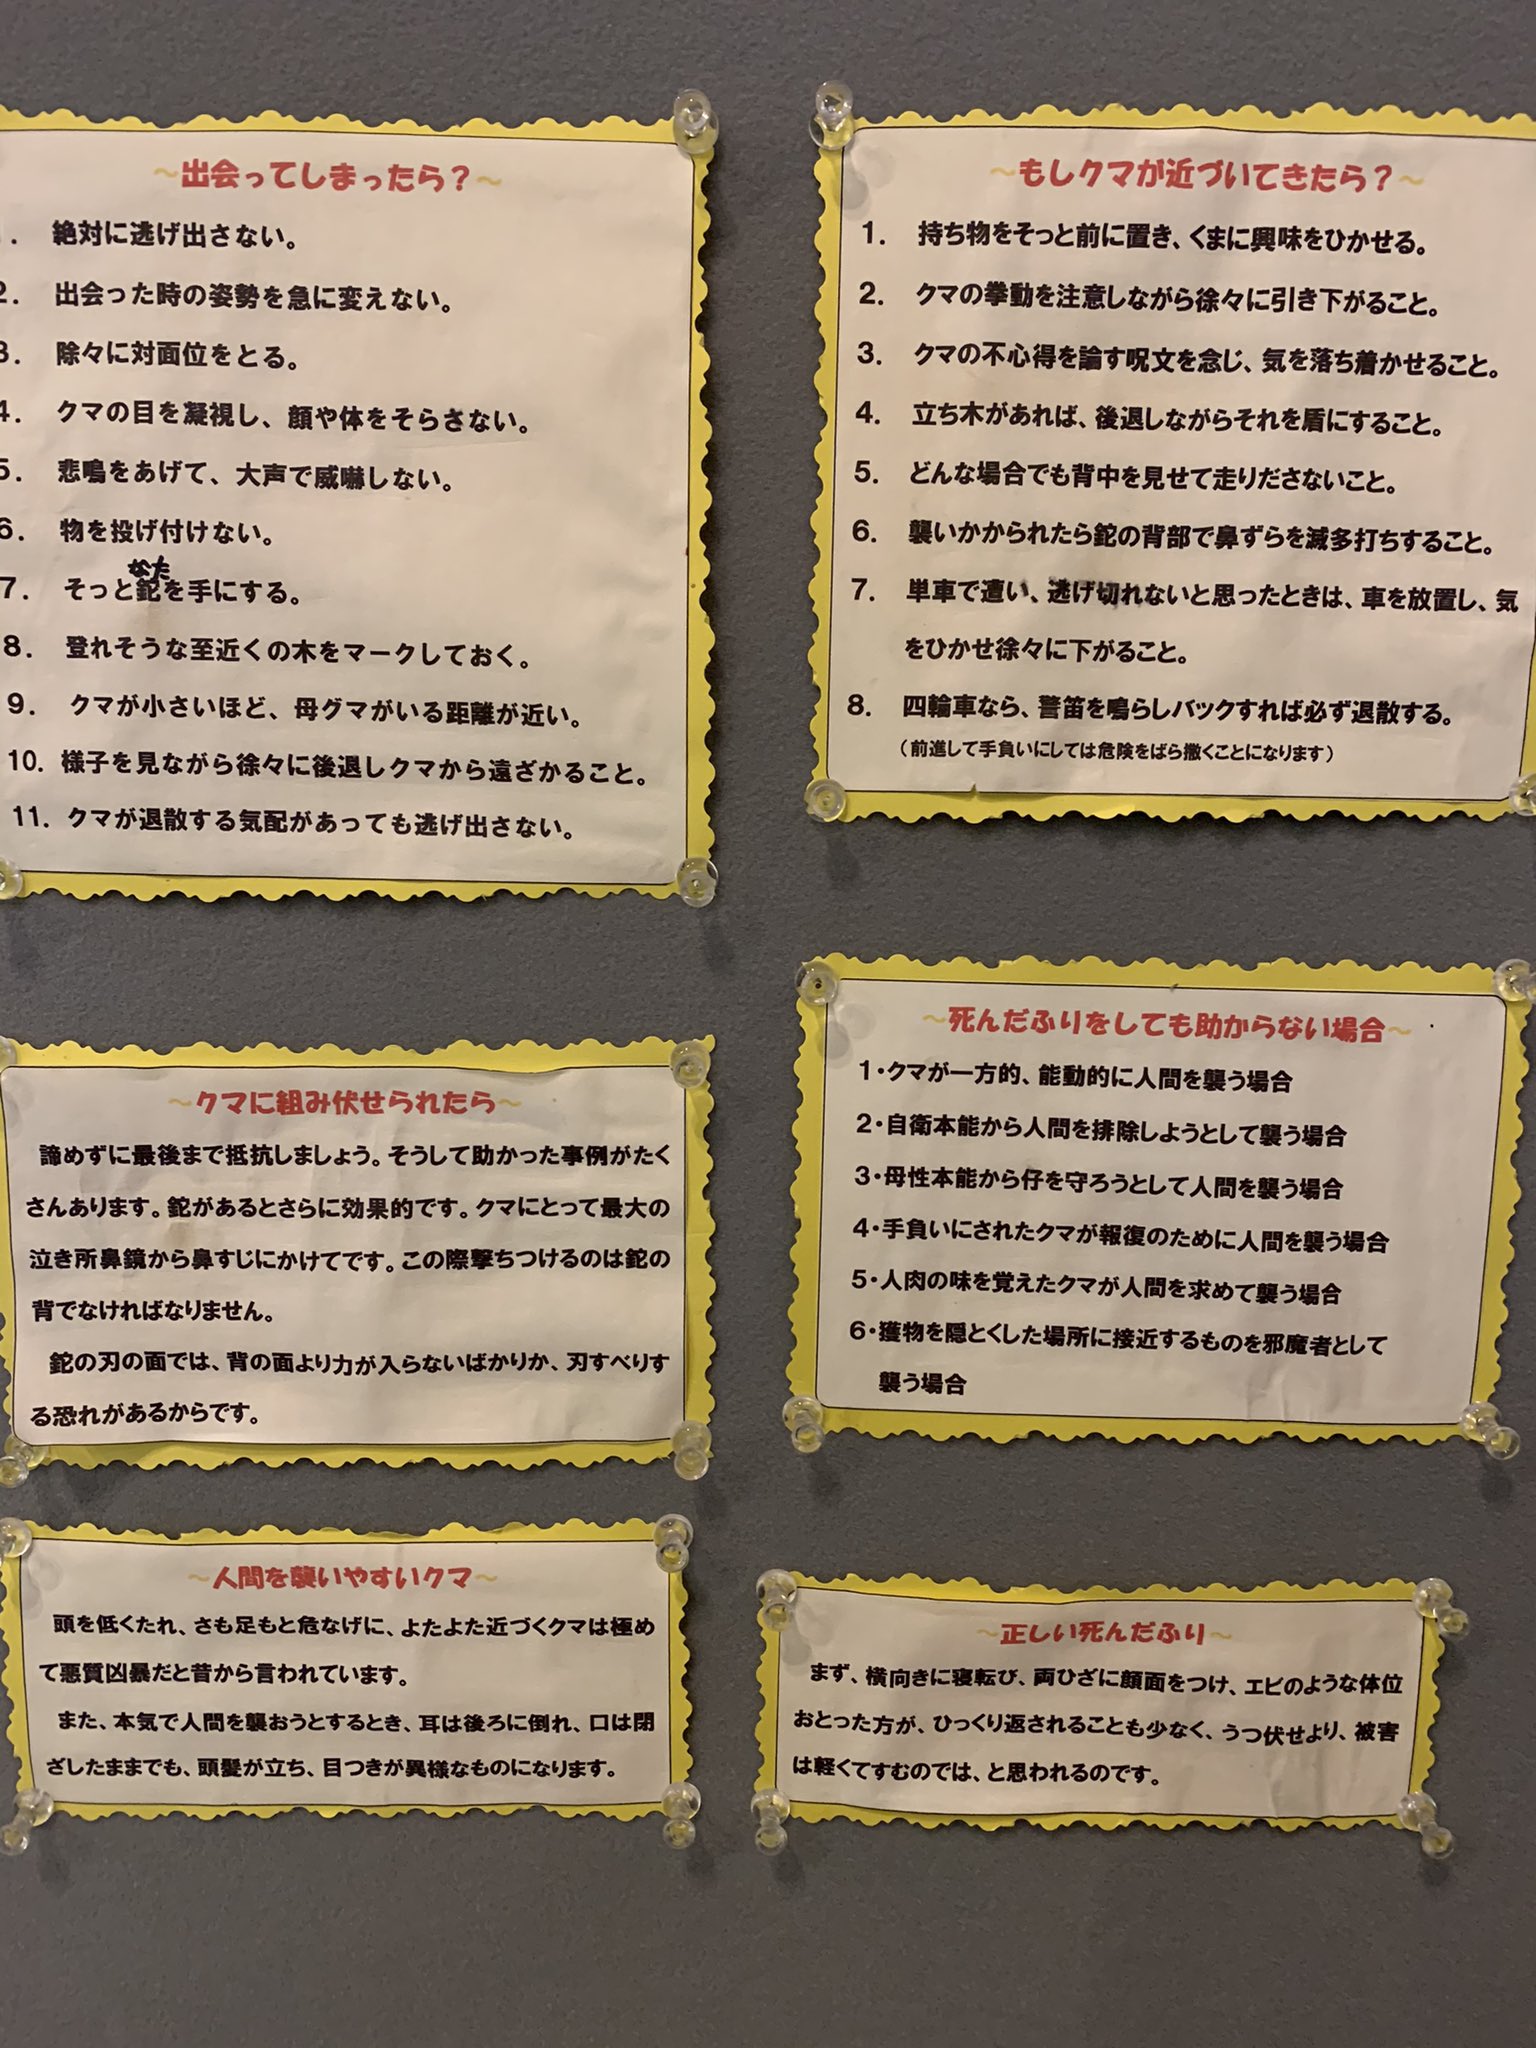 ～出会ってしまったら？～
1. 絶対に逃げ出さない。
2. 出会った時の姿勢を急に変えない。
3. 除々に対面位をとる。
4. クマの目を凝視し、顔や体をそらさない。
5. 悲鳴をあげて、大声で威嚇しない。
6. 物を投げ付けない。
なた
7. そっと鉈を手にする。
8. 登れそうな至近くの木をマークしておく。
9. クマが小さいほど、母グマがいる距離が近い。
10. 様子を見ながら徐々に後退しクマから遠ざかること。
11. クマが退散する気配があっても逃げ出さない。
～もしクマが近づいてきたら？～
1. 持ち物をそっと前に置き、くまに興味をひかせる。
2. クマの挙動を注意しながら徐々に引き下がること。
3. クマの不心得を論す呪文を念じ、気を落ち着かせること。
4. 立ち木があれば、後退しながらそれを盾にすること。
5. どんな場合でも背中を見せて走りださないこと。
6. 襲いかかられたら鉈の背部で鼻ずらを滅多打ちすること。
7. 単車で遭い、逃げ切れないと思ったときは、車を放置し、気
をひかせ徐々に下がること。
8. 四輪車なら、警笛を鳴らしバックすれば必ず退散する。
（前進して手負いにしては危険をばら撒くことになります）
～クマに組み伏せられたら～
諦めずに最後まで抵抗しましょう。そうして助かった事例がたく
さんあります。鉈があるとさらに効果的です。クマにとって最大の
泣き所鼻鏡から鼻すじにかけてです。この際撃ちつけるのは鉈の
背でなければなりません。
鉈の刃の面では、背の面より力が入らないばかりか、刃すべりす
る恐れがあるからです。
～死んだふりをしても助からない場合～
1・クマが一方的、能動的に人間を襲う場合
2・自衛本能から人間を排除しようとして襲う場合
3・母性本能から仔を守ろうとして人間を襲う場合
4・手負いにされたクマが報復のために人間を襲う場合
5・人肉の味を覚えたクマが人間を求めて襲う場合
6・獲物を隠とくした場所に接近するものを邪魔者として
襲う場合
～人間を襲いやすいクマ～
頭を低くたれ、さも足もと危なげに、よたよた近づくクマは極め
て悪質凶暴だと昔から言われています。
また、本気で人間を襲おうとするとき、耳は後ろに倒れ、口は閉
ざしたままでも、頭髪が立ち、目つきが異様なものになります。
～正しい死んだふり～
まず、横向きに寝転び、両ひざに顔面をつけ、エビのような体位
おとった方が、ひっくり返されることも少なく、うつ伏せより、被害
は軽くてすむのでは、と思われるのです。